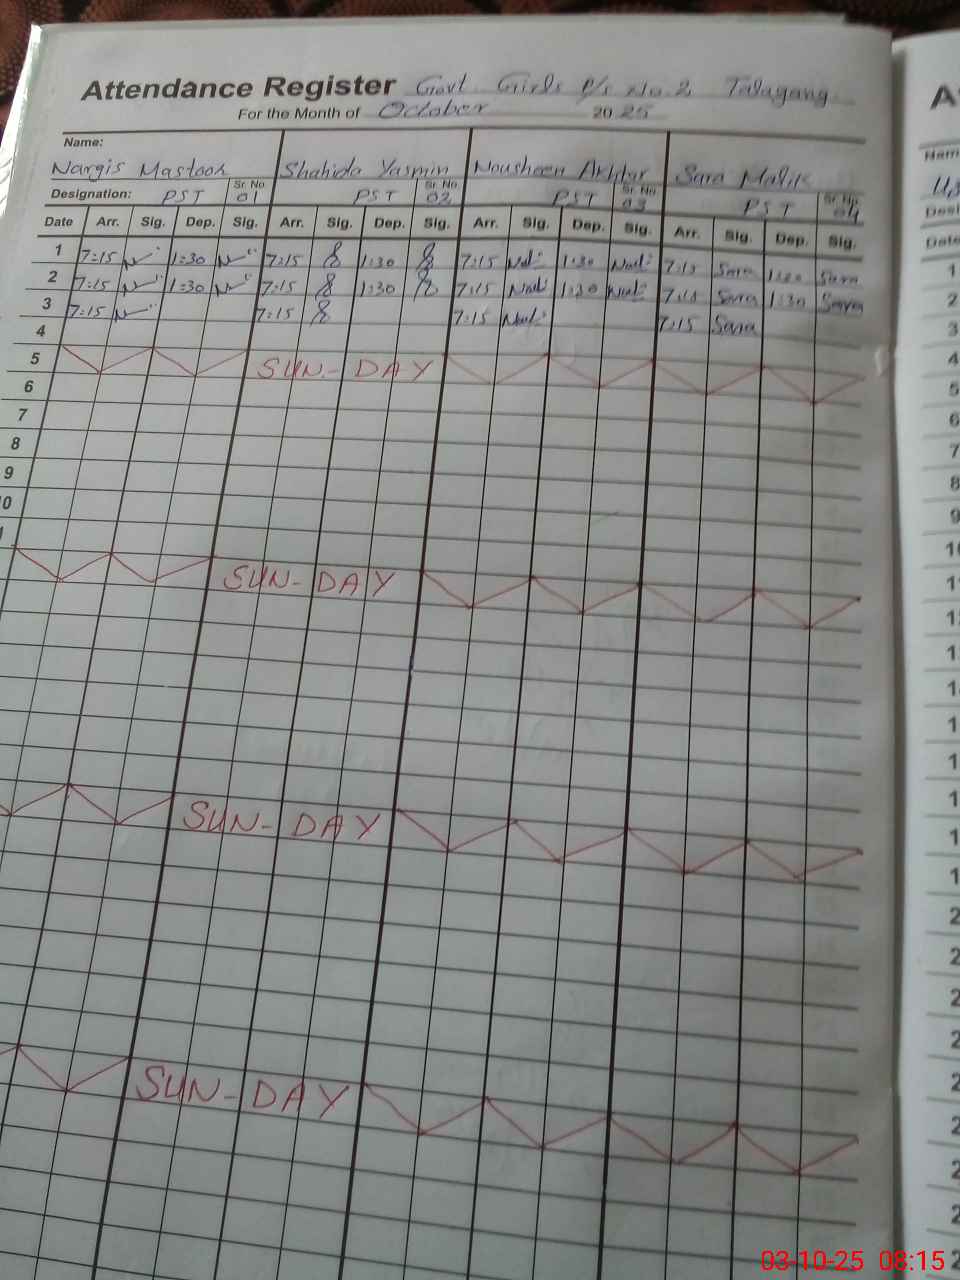 Attendance Register Govt Girls P/S No.2 Talagang
For the Month of October 2025
Name:
Nargis Mastook Shahida Yasmin Nousheen Akhtar Sara Malik
Designation: PST Sr. No. 01 PST Sr. No. 02 PST Sr. No. 03 PST Sr. No. 04
Date Arr. Sig. Dep. Sig. Arr. Sig. Dep. Sig. Arr. Sig. Dep. Sig. Arr. Sig. Dep. Sig.
1 7:15 1:30 7:15 1:30 7:15 1:30 7:15 Sara 1:30 Sara
2 7:15 1:30 7:15 1:30 7:15 1:30 7:15 Sara 1:30 Sara
3 7:15 7:15 7:15 7:15 Sara
4
5 SUN-DAY
6
7
8
9
10
SUN-DAY
SUN-DAY
SUN-DAY
03-10-25 08:15